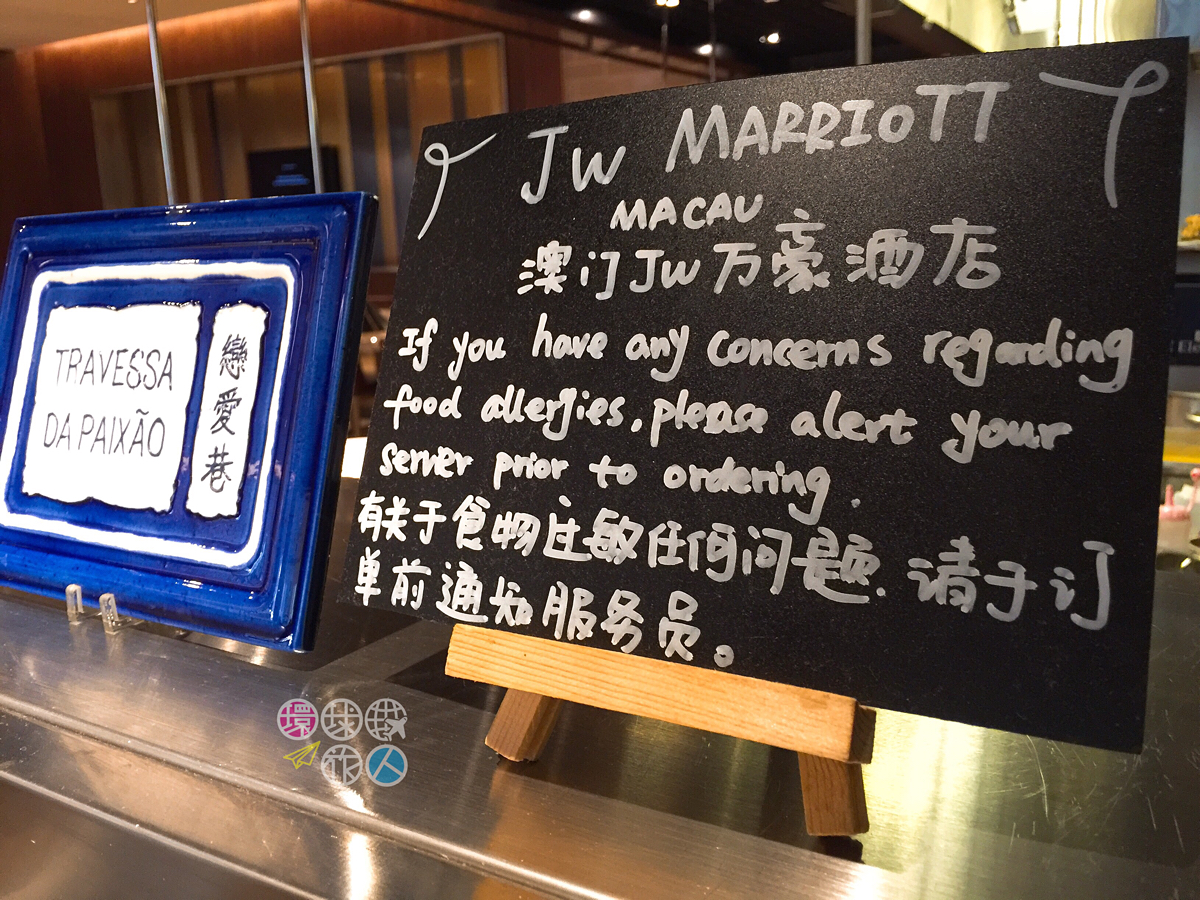 TRAVESSA
DA PAIXÃO
戀愛巷
JW MARRIOTT
MACAU
澳门JW万豪酒店
If you have any concerns regarding
food allergies, please alert your
server prior to ordering.
有关于食物过敏任何问题，请于订
单前通知服务员。
環球
旅人